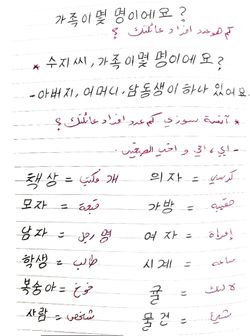 가족이 몇 명이에요?
كم هو عدد افراد عائلتك ؟
* 수지 씨, 가족이 몇 명이에요?
- 아버지, 어머니, 남동생이 하나 있어요.
* آنسة سوزي كم عدد افراد عائلتك ؟
- ابي ، امي و اخي الصغير .
책상 = مكتب 개 의자 = كرسي
모자 = قبعة 가방 = حقيبة
남자 = رجل 명 여자 = إمرأة
학생 = طالب 시계 = ساعة
복숭아 = خوخ 귤 =
사람 = شخص 물건 = شيء